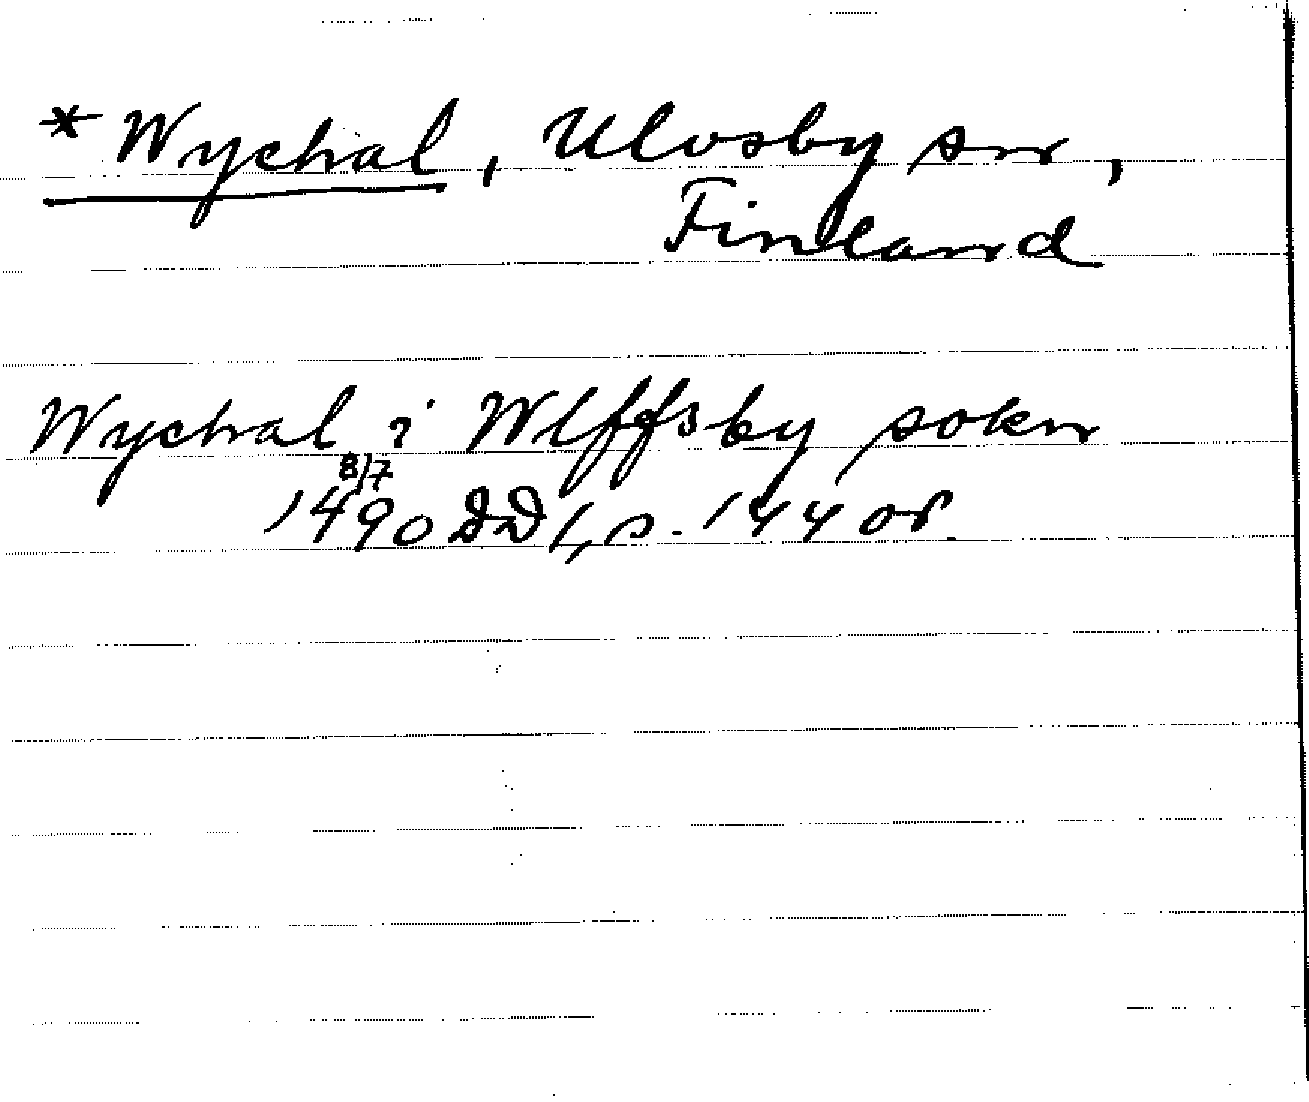 * Wychal, Ulvsby sn,
Finland
Wychal i Wlffsby sokn
8/7
1490 DD 1, s. 144 or.